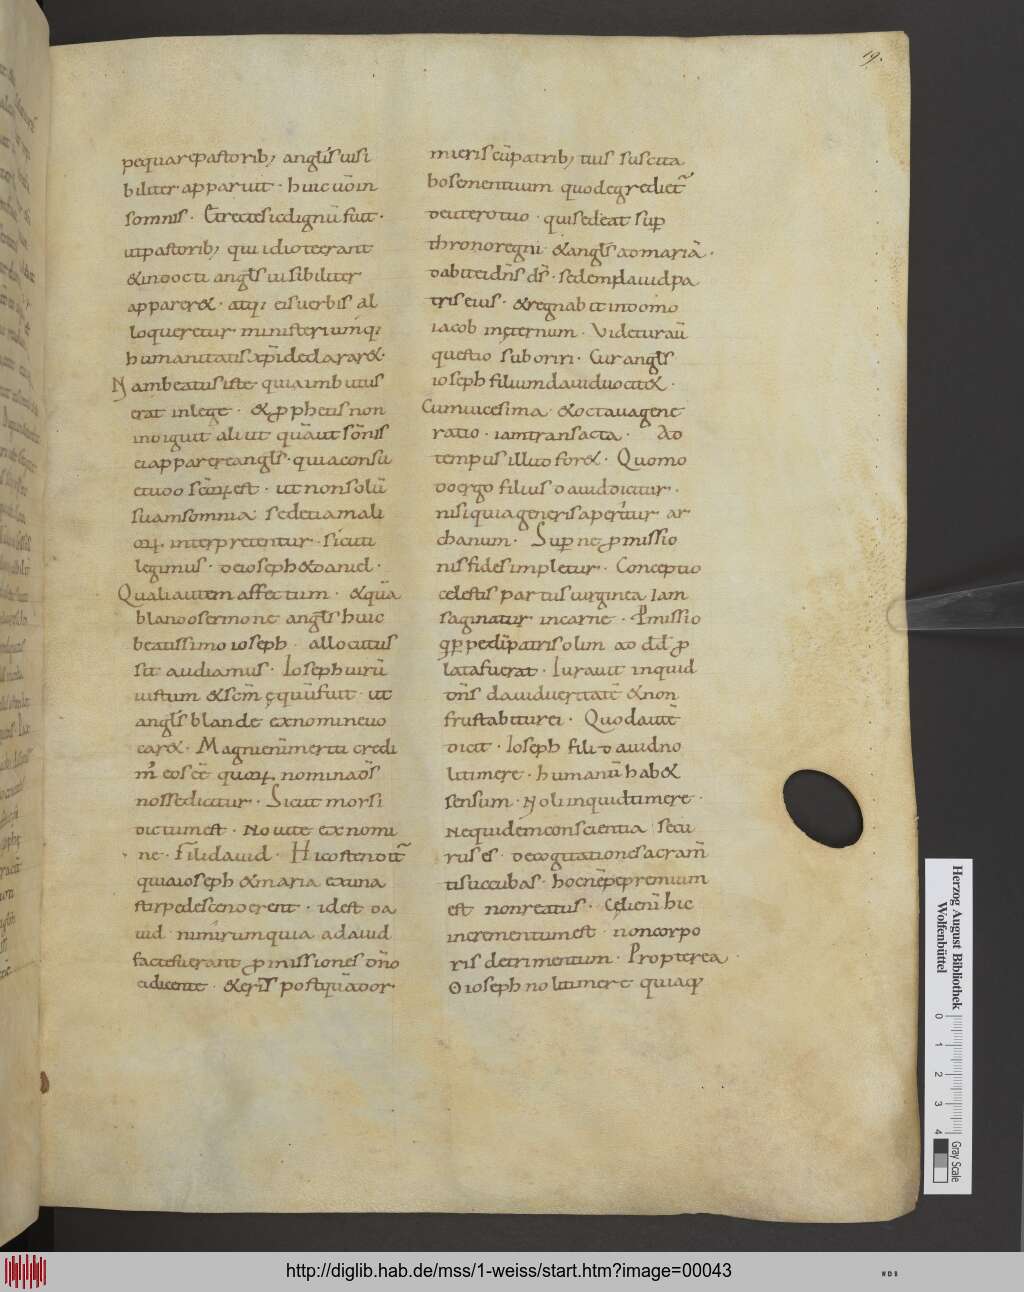 19.
pequare pastorib; angl's uisi
biliter apparuit · huic uō in
somnis · Et recte sic dignū fuit ·
ut pastorib; qui idiote erant
& indocti angl's uisibiliter
apparer& · atq; eis uerbis al
loqueretur · ministeriumq;
humanitatis xp̄i declarar& ·
Nam beatus iste quia imbutus
erat in lege · & prophetis non
indiguit aliut quā ut sōnis
ei apparere angl's · quia consu
etudo scōꝝ est · ut non solū
sua somnia sed etiam ali
oꝝ interpretentur · sicuti
legimus · de ioseph & daniel ·
Quali autem affectum · & quā
blando sermone angl's huic
beatissimo ioseph · allocutus
sit audiamus · Ioseph uirū
iustum & sc̄m ęquū fuit · ut
angl's blande ex nomine uo
car& · Magni enī meriti credi
m̄ eos eē quoꝝ nomina d̄s
nosse dicitur · Sicut morsi
dictum est · Noui te ex nomi
ne · Fili dauid · Hic ostendit̄
quia ioseph & maria ex una
stirpe descenderent · id est da
uid · nimirum quia ad auid
facte fuerant promissiones dn̄o
dicente · & eris postquā dor
mieris cū patrib; tuis suscita
bo semen tuum quod egrediet̄
de utero tuo · qui sedeat sup
thronum regni · & angl's ad mariā ·
dabit ei dn̄s ds̄ · sedem dauid pa
tris eius · & regnabit in domo
iacob in ęternum · Videtur aū
questio suboriri · Cur angl's
ioseph filium dauid uocit& ·
Cum uicesima & octaua gene
ratio · iam transacta · Ad
tempus illud for& · Quomo
do ergo filius dauid dicitur ·
nisi quia generis aperitur ar
chanum · Supne promissio
nis fides impletur · Conceptio
celestis partus uirginea Iam
saginatur in carne · Promissio
q̄ppe dn̄i patris olim ad dd̄ p
lata fuerat · Iurauit inquid
dn̄s dauid ueritatē & non
frustabitur ei · Quod autē
dicit · Ioseph fili dauid no
li timere · humanū hab&
sensum · Noli inquid timere ·
Ne quidem conscientia secu
rus es · de cogitatione sacram̄
ti succubas · hoc nēpe premium
est non reatus · Cęli enī hic
incrementum est · non corpo
ris detrimentum · Propterea ·
O ioseph noli timere quia qđ
Herzog August Bibliothek
Wolfenbüttel
0 1 2 3 4
Gray Scale
http://diglib.hab.de/mss/1-weiss/start.htm?image=00043